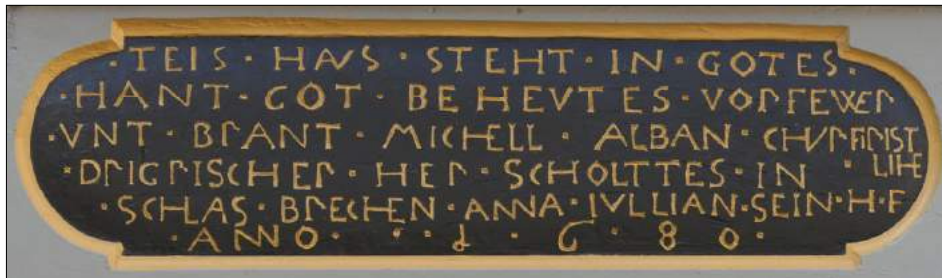 ·TEIS·HAVS·STEHT·IN·GOTES·
·HANT·GOT·BEHEVT ES·VOR FEWER
·VNT·BRANT·MICHELL·ALBAN·CHVRFIRIST
·DRIGRISCHER·HER·SCHOLTTES·IN·LIHE
·SCHLAS·BRECHEN·ANNA·IVLLIAN·SEIN·H·F
·ANNO···1·6·8·0·